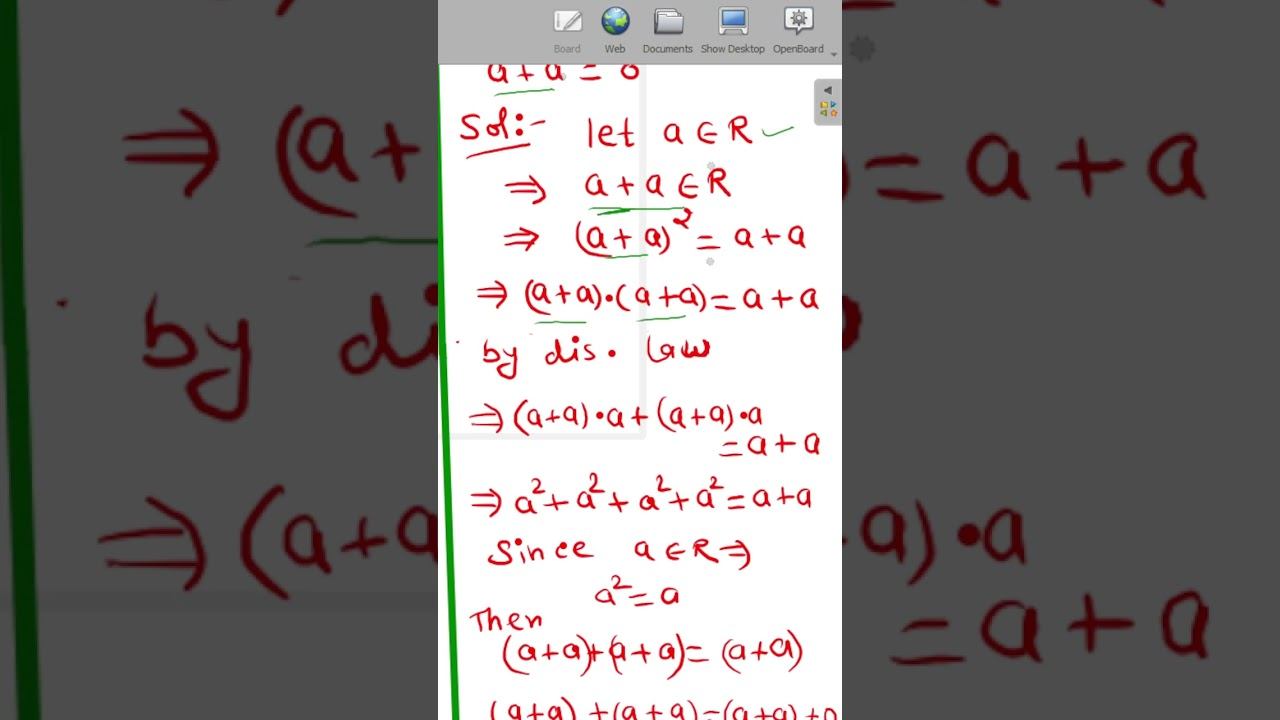 Board Web Documents Show Desktop OpenBoard
a + a = 0
Sol:- let a ∈ R ✓
⇒ a + a ∈ R
⇒ (a + a)² = a + a
⇒ (a + a)•(a + a) = a + a
by dis. law
⇒ (a+a)•a + (a+a)•a
= a + a
⇒ a² + a² + a² + a² = a + a
Since a ∈ R ⇒
a² = a
Then
(a+a)+(a+a) = (a+a)
(a+a) + (a+a) = (a+a) + 0